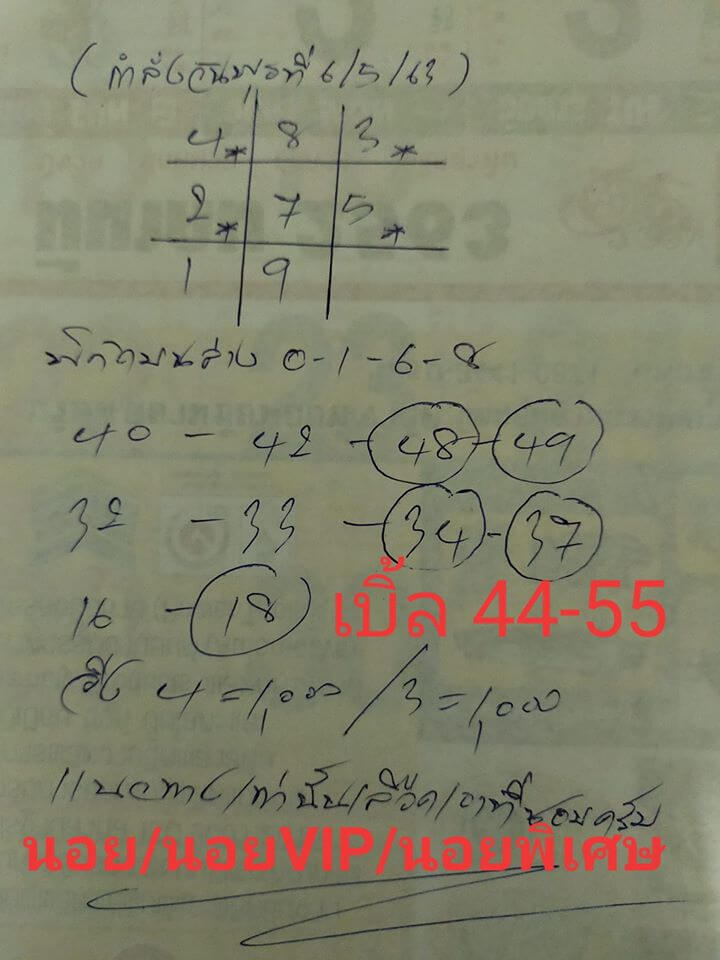 (กำลังวันพุธที่ 6/5/63)
4* 8 3*
2* 7 5*
1 9
พิกัดบนล่าง 0-1-6-8
40 - 42 - 48 - 49
32 - 33 - 34 - 37
16 - 18
เบิ้ล 44-55
วิ่ง 4 = 1,000 / 3 = 1,000
แนวทางเท่านั้นเลือกเอาที่ชอบครับ
นอย/นอยVIP/นอยพิเศษ